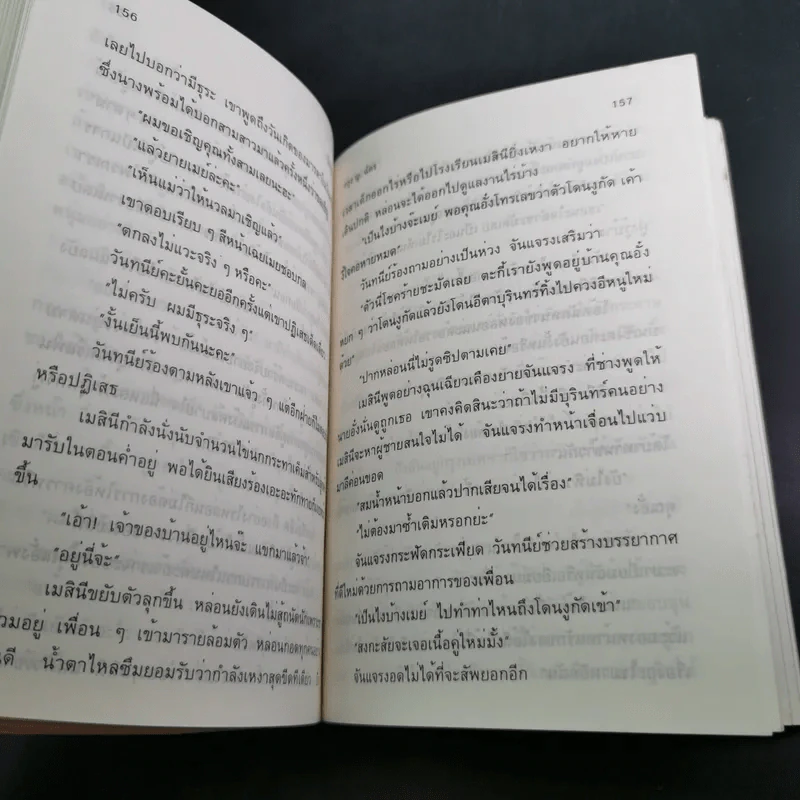 156
เลยไปบอกว่ามีธุระ เขาพูดถึงวันเกิดของ
ซึ่งนางพร้อมได้บอกสามสาวมาแล้วครั้งหนึ่ง
"ผมขอเชิญคุณทั้งสามเลยนะฮะ"
"แล้วยายเมย์ล่ะคะ"
"เห็นแม่ว่าให้นวลมาเชิญแล้ว"
เขาตอบเรียบ ๆ สีหน้าเฉยเมยชอบกล
"ตกลงไม่แวะจริง ๆ หรือคะ"
วันทนีย์คะยั้นคะยออีกครั้งแต่เขาปฏิเสธ
"ไม่ครับ ผมมีธุระจริง ๆ"
"งั้นเย็นนี้พบกันนะคะ"
วันทนีย์ร้องตามหลังเขาแจ้ว ๆ แต่อีกฝ่าย
หรือปฏิเสธ
เมสินีกำลังนั่งนับจำนวนไข่นกกระทาเค็มสำหรับ
มารับในตอนค่ำอยู่ พอได้ยินเสียงร้องเอะอะทักทาย
ขึ้น
"เอ้า! เจ้าของบ้านอยู่ไหนจ๊ะ แขกมาแล้วจ้า"
"อยู่นี่จ้ะ"
เมสินีขยับตัวลุกขึ้น หล่อนยังเดินไม่สู้ถนัดนัก
อยู่ เพื่อน ๆ เข้ามารายล้อมตัว หล่อนกอดทุกคน
น้ำตาไหลซึมยอมรับว่ากำลังเหงาสุดขีดทีเดียว
157
เด็กออกไร่หรือไปโรงเรียนเมสินียิ่งเหงา อยากให้หาย
ปกติ หล่อนจะได้ออกไปดูแลงานไร่บ้าง
"เป็นไงบ้างจ๊ะเมย์ พอคุณอั๋งโทรเลขว่าตัวโดนงูกัด เค้า
รู้ใจคอหายหมด"
วันทนีย์ร้องถามอย่างเป็นห่วง จันแจรงเสริมว่า
"ตัวนี่โชคร้ายชะมัดเลย ตะกี้เรายังพูดอยู่บ้านคุณอั๋ง
หยก ๆ ว่าโดนงูกัดแล้วยังโดนอีตาบุรินทร์ทิ้งไปควงอีหนูใหม่
ด้วย"
"ปากหล่อนนี่ไม่รูดซิปตามเคย"
เมสินีพูดอย่างฉุนเฉียวเคืองย่ายจันแจรง ที่ช่างพูดให้
นายอั๋งนั่นดูถูกเธอ เขาคงคิดสินะว่าถ้าไม่มีบุรินทร์คนอย่าง
เมสินีจะหาผู้ชายสนใจไม่ได้ จันแจรงทำหน้าเจื่อนไปแว่บ
มาลีค่อนขอด
"สมน้ำหน้าบอกแล้วปากเสียจนได้เรื่อง"
"ไม่ต้องมาซ้ำเติมหรอกย่ะ"
จันแจรงกระฟัดกระเฟียด วันทนีย์ช่วยสร้างบรรยากาศ
ที่ดีใหม่ด้วยการถามอาการของเพื่อน
"เป็นไงบ้างเมย์ ไปทำท่าไหนถึงโดนงูกัดเข้า"
"สงกะสัยจะเจอเนื้อคู่ใหม่มั้ง"
จันแจรงอดไม่ได้ที่จะสัพยอกอีก